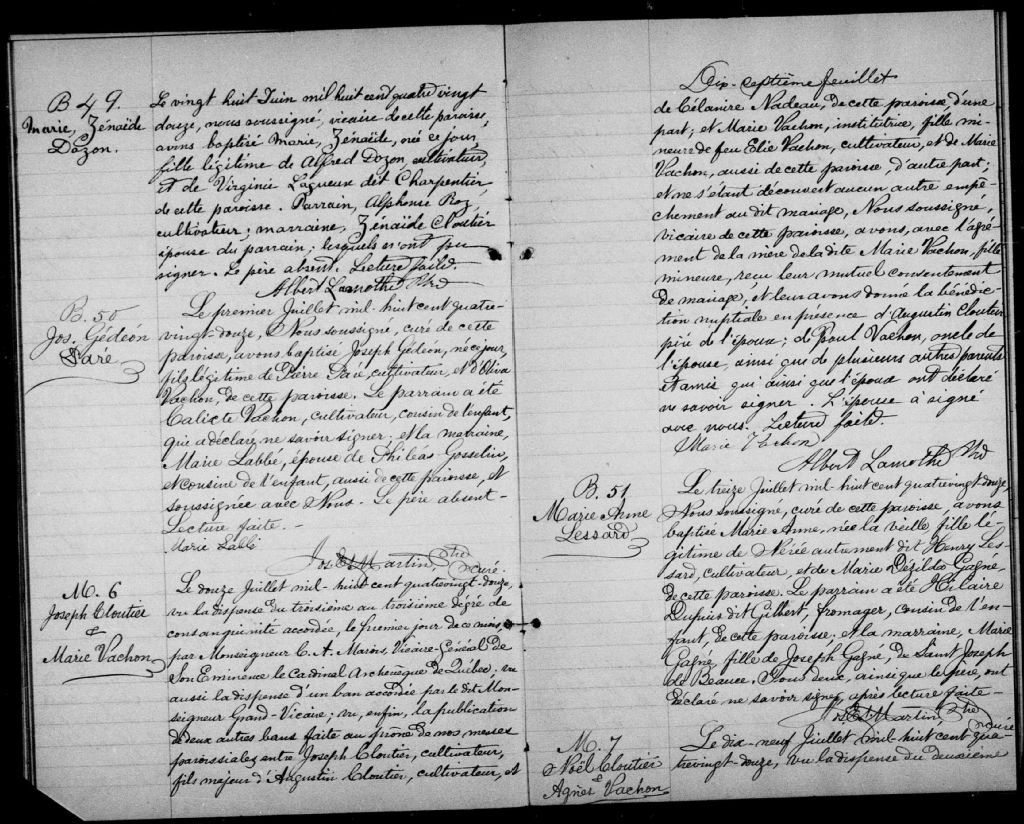 B 49.
Marie, Zénaïde
Dozon.
Le vingt huit Juin mil huit cent quatre vingt
douze, nous soussigné, vicaire de cette paroisse,
avons baptisé Marie, Zénaïde, née ce jour
fille légitime de Alfred Dozon cultivateur,
et de Virginie Lagueux dit Charpentier
de cette paroisse. Parrain, Alphonse Roy,
cultivateur; marraine, Zénaïde Cloutier
épouse du parrain; lesquels n'ont pu
signer. Le père absent. Lecture faite.
Albert Lamothe Ptre
B. 50
Jos. Gédéon
Paré
Le premier Juillet mil-huit cent quatre-
vingt-douze, Nous soussigné, curé de cette
paroisse, avons baptisé Joseph Gédéon, né ce jour,
fils légitime de Pierre Paré, cultivateur, et d'Oliva
Vachon, de cette paroisse. Le parrain a été
Calixte Vachon, cultivateur, cousin de l'enfant,
qui a déclaré ne savoir signer; et la marraine,
Marie Labbé, épouse de Philéas Gosselin,
et cousine de l'enfant, aussi de cette paroisse, et
soussignée avec Nous. Le père absent-
Lecture faite. -
Marie Labbé
Jos. E. Martin, Ptre
curé.
M. 6
Joseph Cloutier
&
Marie Vachon
Le douze Juillet mil-huit cent quatrevingt-douze,
vu la dispense du troisième au troisième dégré de
consanguinité accordée, le premier jour de ce mois,
par Monseigneur C. A. Marois, Vicaire-Général de
Son Eminence le Cardinal Archevêque de Québec; vu
aussi la dispense d'un ban accordée par le dit Mon-
seigneur Grand-Vicaire; vu, enfin, la publication
de deux autres bans faite au prône de nos messes
paroissiales entre Joseph Cloutier, cultivateur,
fils majeur d'Augustin Cloutier, cultivateur, et
Dix-septième feuillet
de Célanire Nadeau, de cette paroisse, d'une
part; et Marie Vachon, institutrice, fille mi-
neure de feu Elie Vachon, cultivateur, et de Marie
Vachon, aussi de cette paroisse, d'autre part;
et ne s'étant découvert aucun autre empê-
chement au dit mariage, Nous soussigné,
vicaire de cette paroisse, avons, avec l'agré-
ment de la mère de la dite Marie Vachon, fille
mineure, reçu leur mutuel consentement
de mariage, et leur avons donné la bénédic-
tion nuptiale en présence d'Augustin Cloutier
père de l'époux; de Paul Vachon, oncle de
l'épouse, ainsi que de plusieurs autres parents
et amis qui ainsi que l'époux ont déclaré
ne savoir signer. L'épouse a signé
avec nous. Lecture faite.
Marie Vachon
Albert Lamothe Ptre
B. 51
Marie Anne
Lessard
Le treize Juillet mil-huit cent quatrevingt douze,
Nous soussigné, curé de cette paroisse, avons
baptisé Marie Anne, née la veille, fille lé-
gitime de Nérée autrement dit Henry Les-
sard, cultivateur, et de Marie Dézilda Gagné
de cette paroisse. Le parrain a été Hilaire
Dupuis dit Gilbert, fromager, cousin de l'en-
fant, de cette paroisse; et la marraine, Marie
Gagné, fille de Joseph Gagné, de Saint Joseph
de Beauce. Tous deux, ainsi que le père, ont
déclaré ne savoir signer, après lecture faite-
Jos. E. Martin, Ptre
curé
M. 7
Noël Cloutier
&
Agnès Vachon
Le dix-neuf Juillet mil-huit cent qua-
trevingt-douze, vu la dispense du deuxième